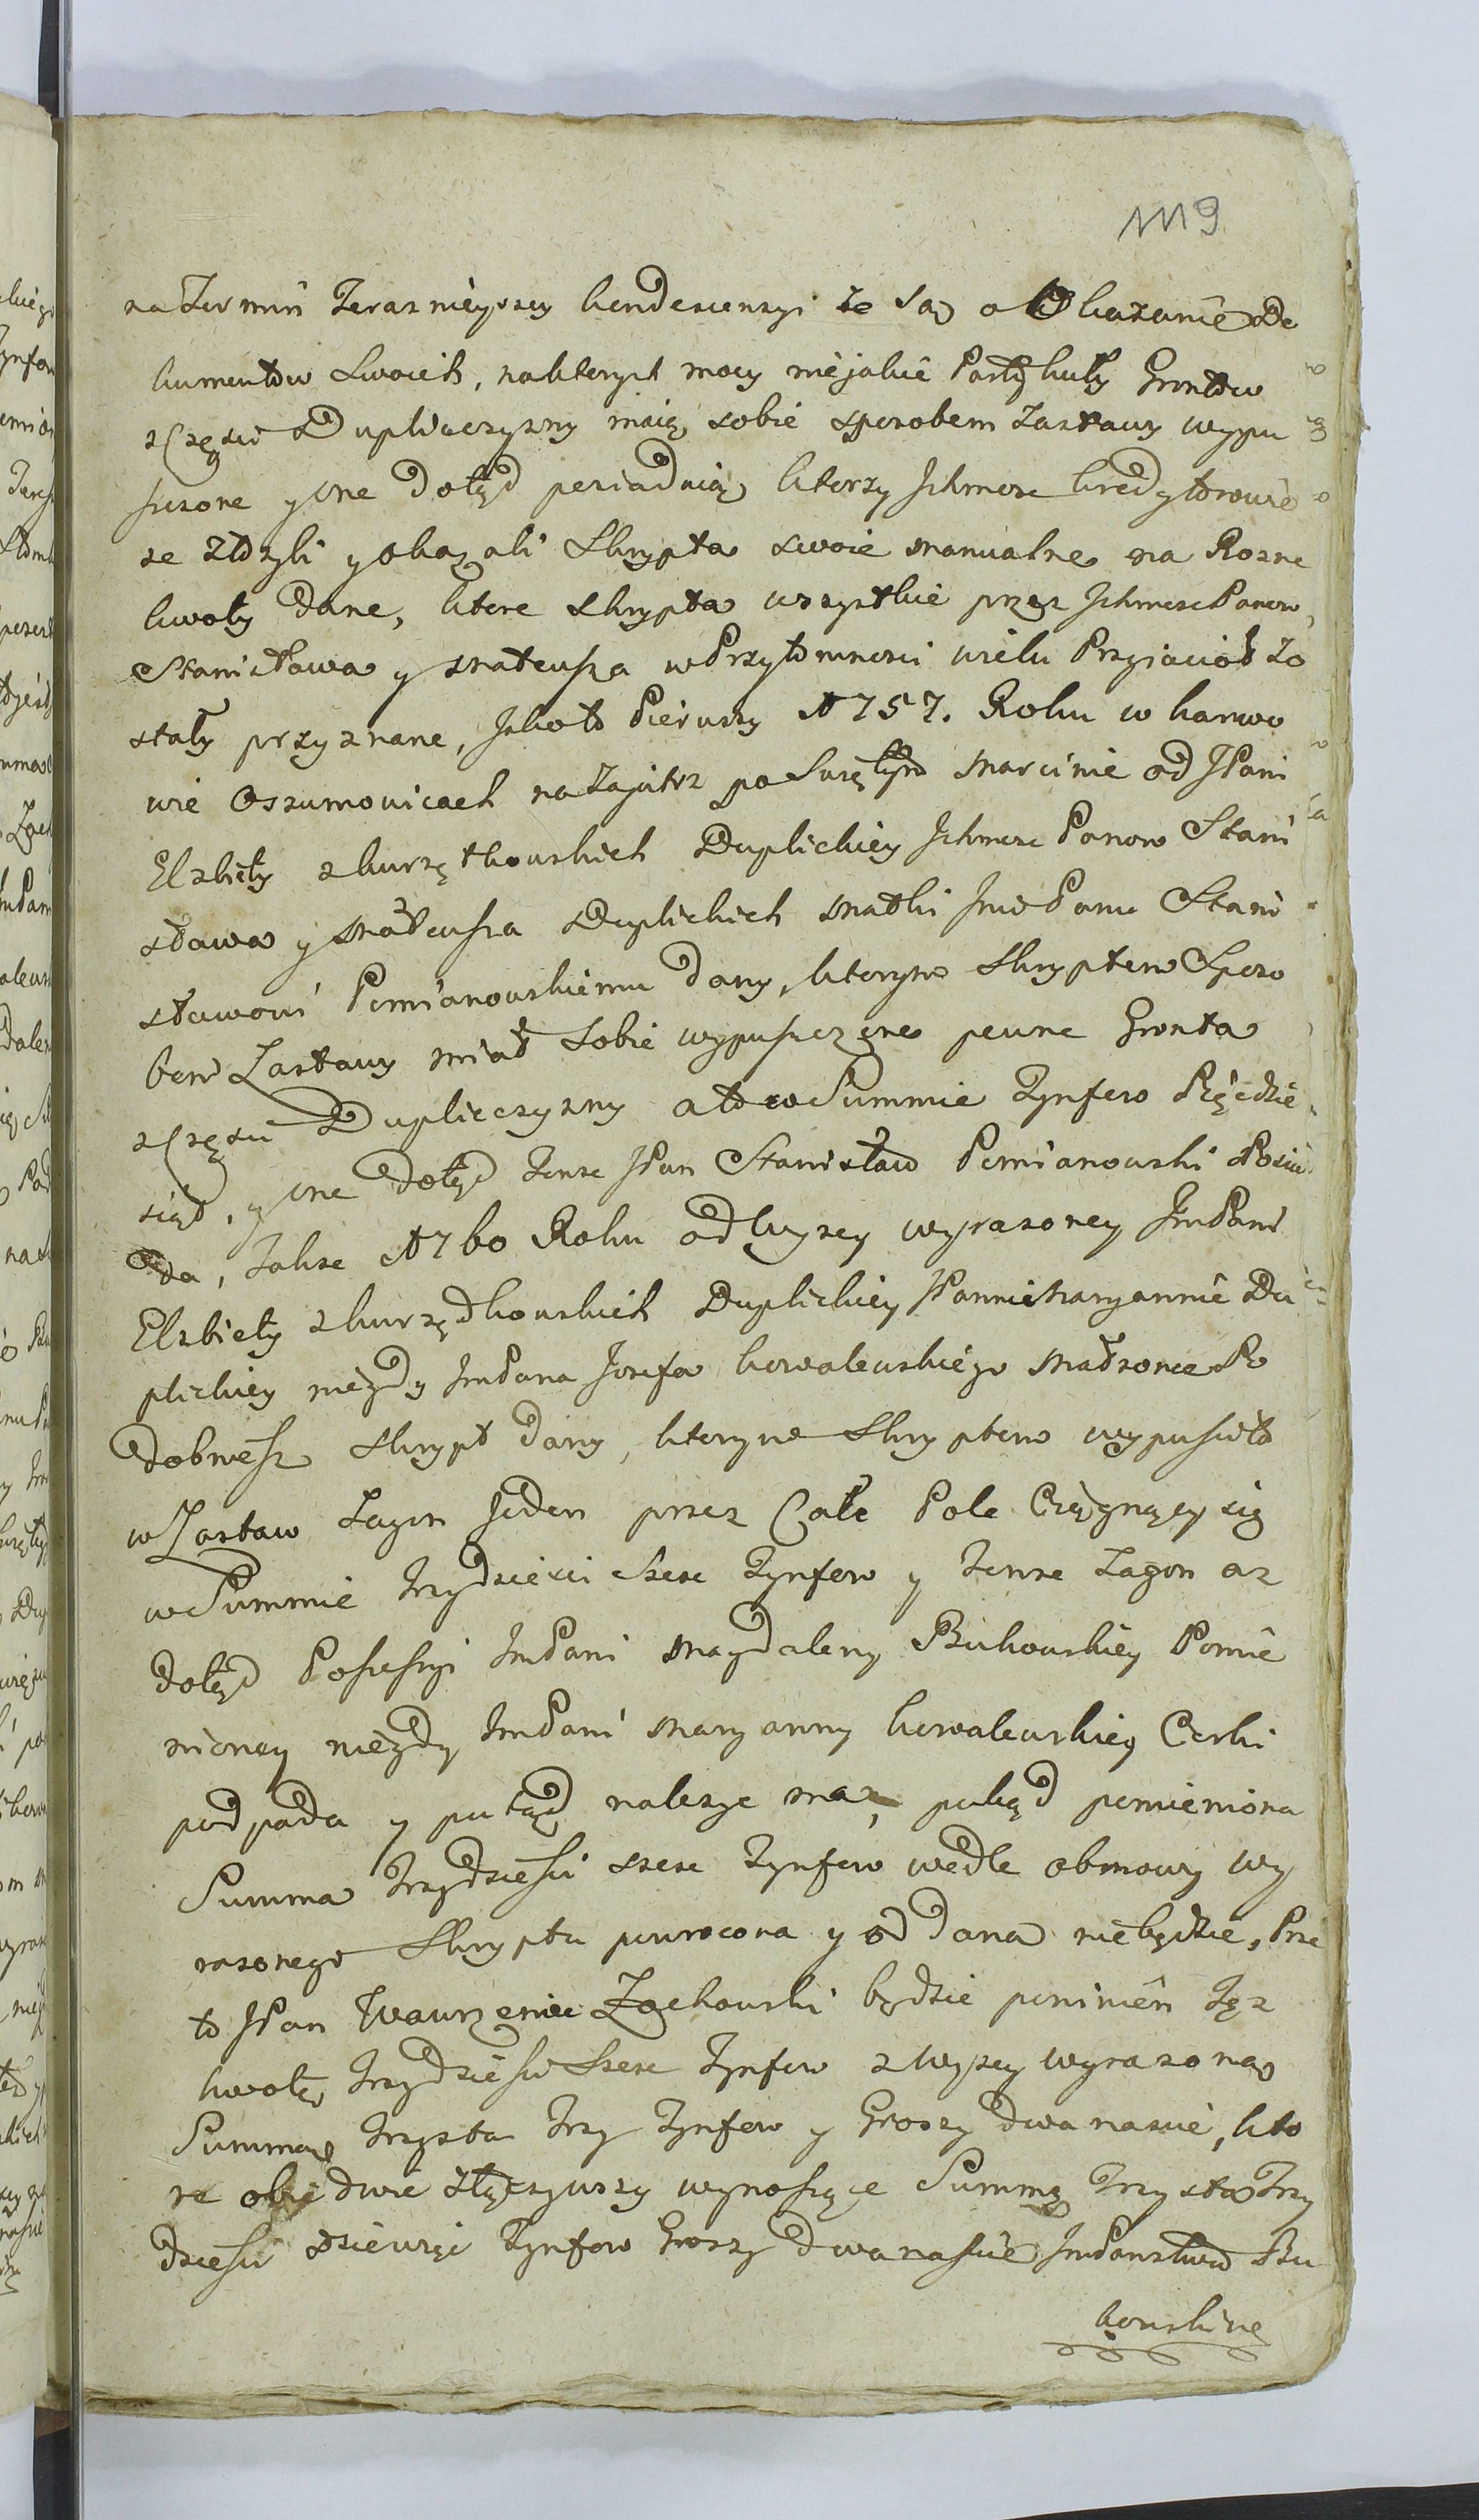 1119
na Termin Terasnieyszey kondescensyi ze są o Okazanie Do
kumentow Swoich, naktorych mocy niejakie Partykuły Gruntow
z Części Duplicczyzny maią sobie sposobem zastawy wypu
szczone y one dotąd posiadaią ktorzy Ichmosc kredytorowie
ze złożyli y okazali Skrypta swoie manualne na Rozne
kwoty dane, ktore Skrypta wszystkie przez Ichmosc Panow
Stanisława y Mateusza w Przytomnosci wielu Przyiacioł zo
stały przyznane, Jako to Pierwszy 1757. Roku w karwo
wie Oszumowicach nazajutrz po Swiętym Marcinie od JPani
Elzbiety z kurzątkowskich Duplickiey Ichmosc Panow Stani
sława y Mateusza Duplickich Matki Jmć Panu Stani
sławowi Pomianowskiemu dany, ktorym Skryptem Sposo
bem Zastawy miał Sobie wypuszczone pewne Gronta
z Części Duplicczyzny a to w Summie Tynfow Pięćdzie
siąt, y one dotąd Tenze JPan Stanisław Pomianowski Posia
da, Takze 1760 Roku od Wyzey wyrazoney ImPani
Elzbiety z kurządkowskich Duplickiey JPannie Maryannie Du
plickiey niegdy ImPana Jozefa kowalewskiego Małżonce Po
dobniesz Skrypt dany, ktorym Skryptem wypusciła
w Zastaw Zagon Jeden przez Całe Pole Ciągnący się
w Summie Trzydzieści Szesc Tynfow y Tenze Zagon az
dotąd Possessyi ImPani Magdaleny Bukowskiey Pomie
nioney niegdy ImPani Maryanny kowalewskiey Corki
podpada y potąd nalezyc ma, pokąd pomieniona
Summa Trzydziesci szesc Tynfow wedle obmowy wy
razonego Skryptu powrocona y od dana niebędzie, Prze
to JPan Wawrzeniec Zochowski będzie powinien Tęz
kwotę Trzydziesci Szesc Tynfow z wyzey wyrazoną
Summą Trzysta Trzy Tynfow y Groszy dwanascie, kto
re obie dwie złączywszy wynoszące Summę Trzysta Trzy
dziesci dziewięć Tynfow Groszy dwanascie ImPanstwu Bu
kowskim